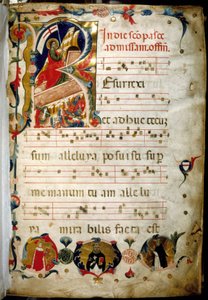 In die sco pasce
ad missam. offm.
Resurrexi
et adhuc tecum
sum alleluya posuisti sup
me manum tu am alle lu
ya mira bilis facta est